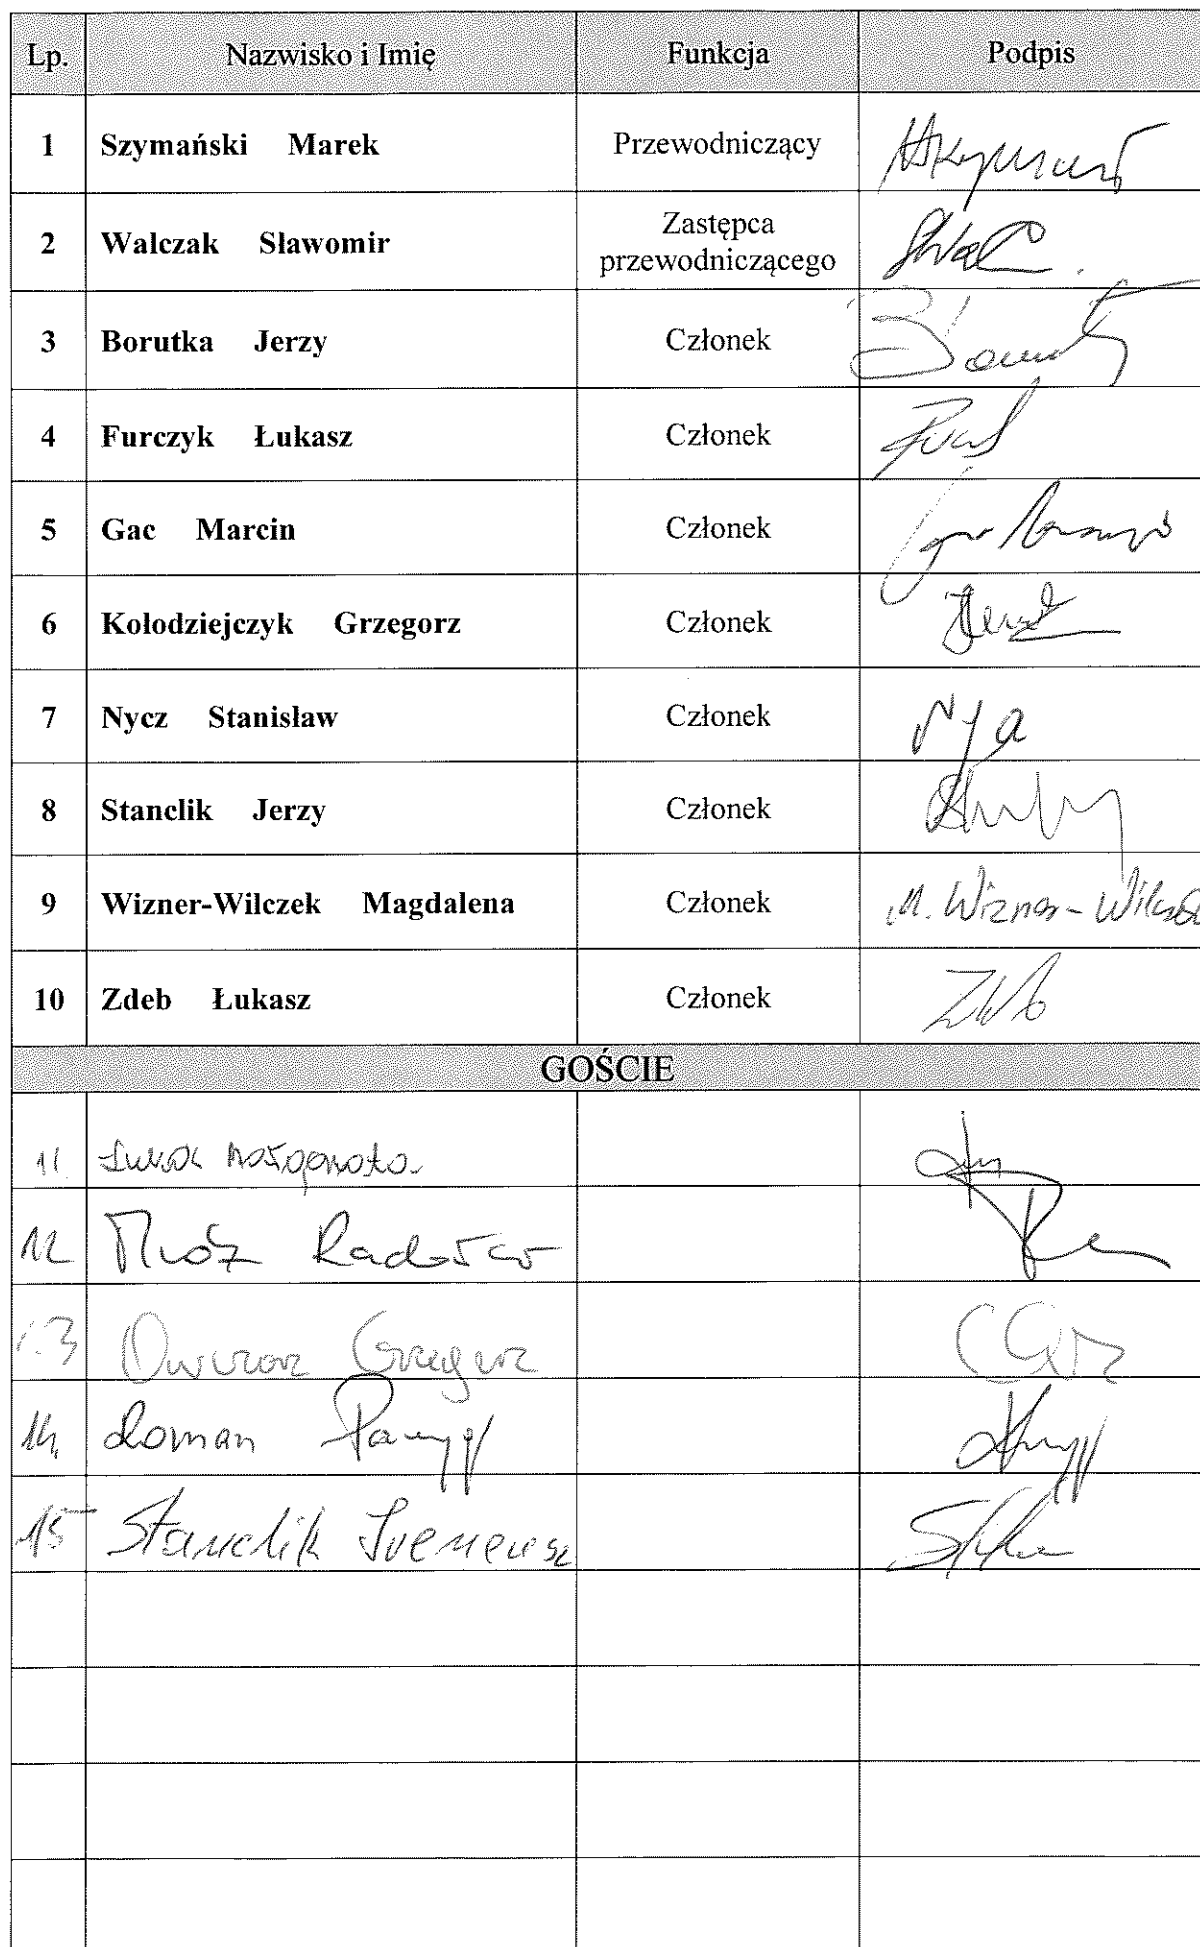 Lp. Nazwisko i Imię Funkcja Podpis
1 Szymański Marek Przewodniczący
2 Walczak Sławomir Zastępca przewodniczącego
3 Borutka Jerzy Członek
4 Furczyk Łukasz Członek
5 Gac Marcin Członek
6 Kołodziejczyk Grzegorz Członek
7 Nycz Stanisław Członek
8 Stanclik Jerzy Członek
9 Wizner-Wilczek Magdalena Członek M. Wizner-Wilczek
10 Zdeb Łukasz Członek
GOŚCIE
11 Małgorzata
12 Mróz Radosław
13 Owczarz Grzegorz
14. Roman
15 Stanclik Ireneusz